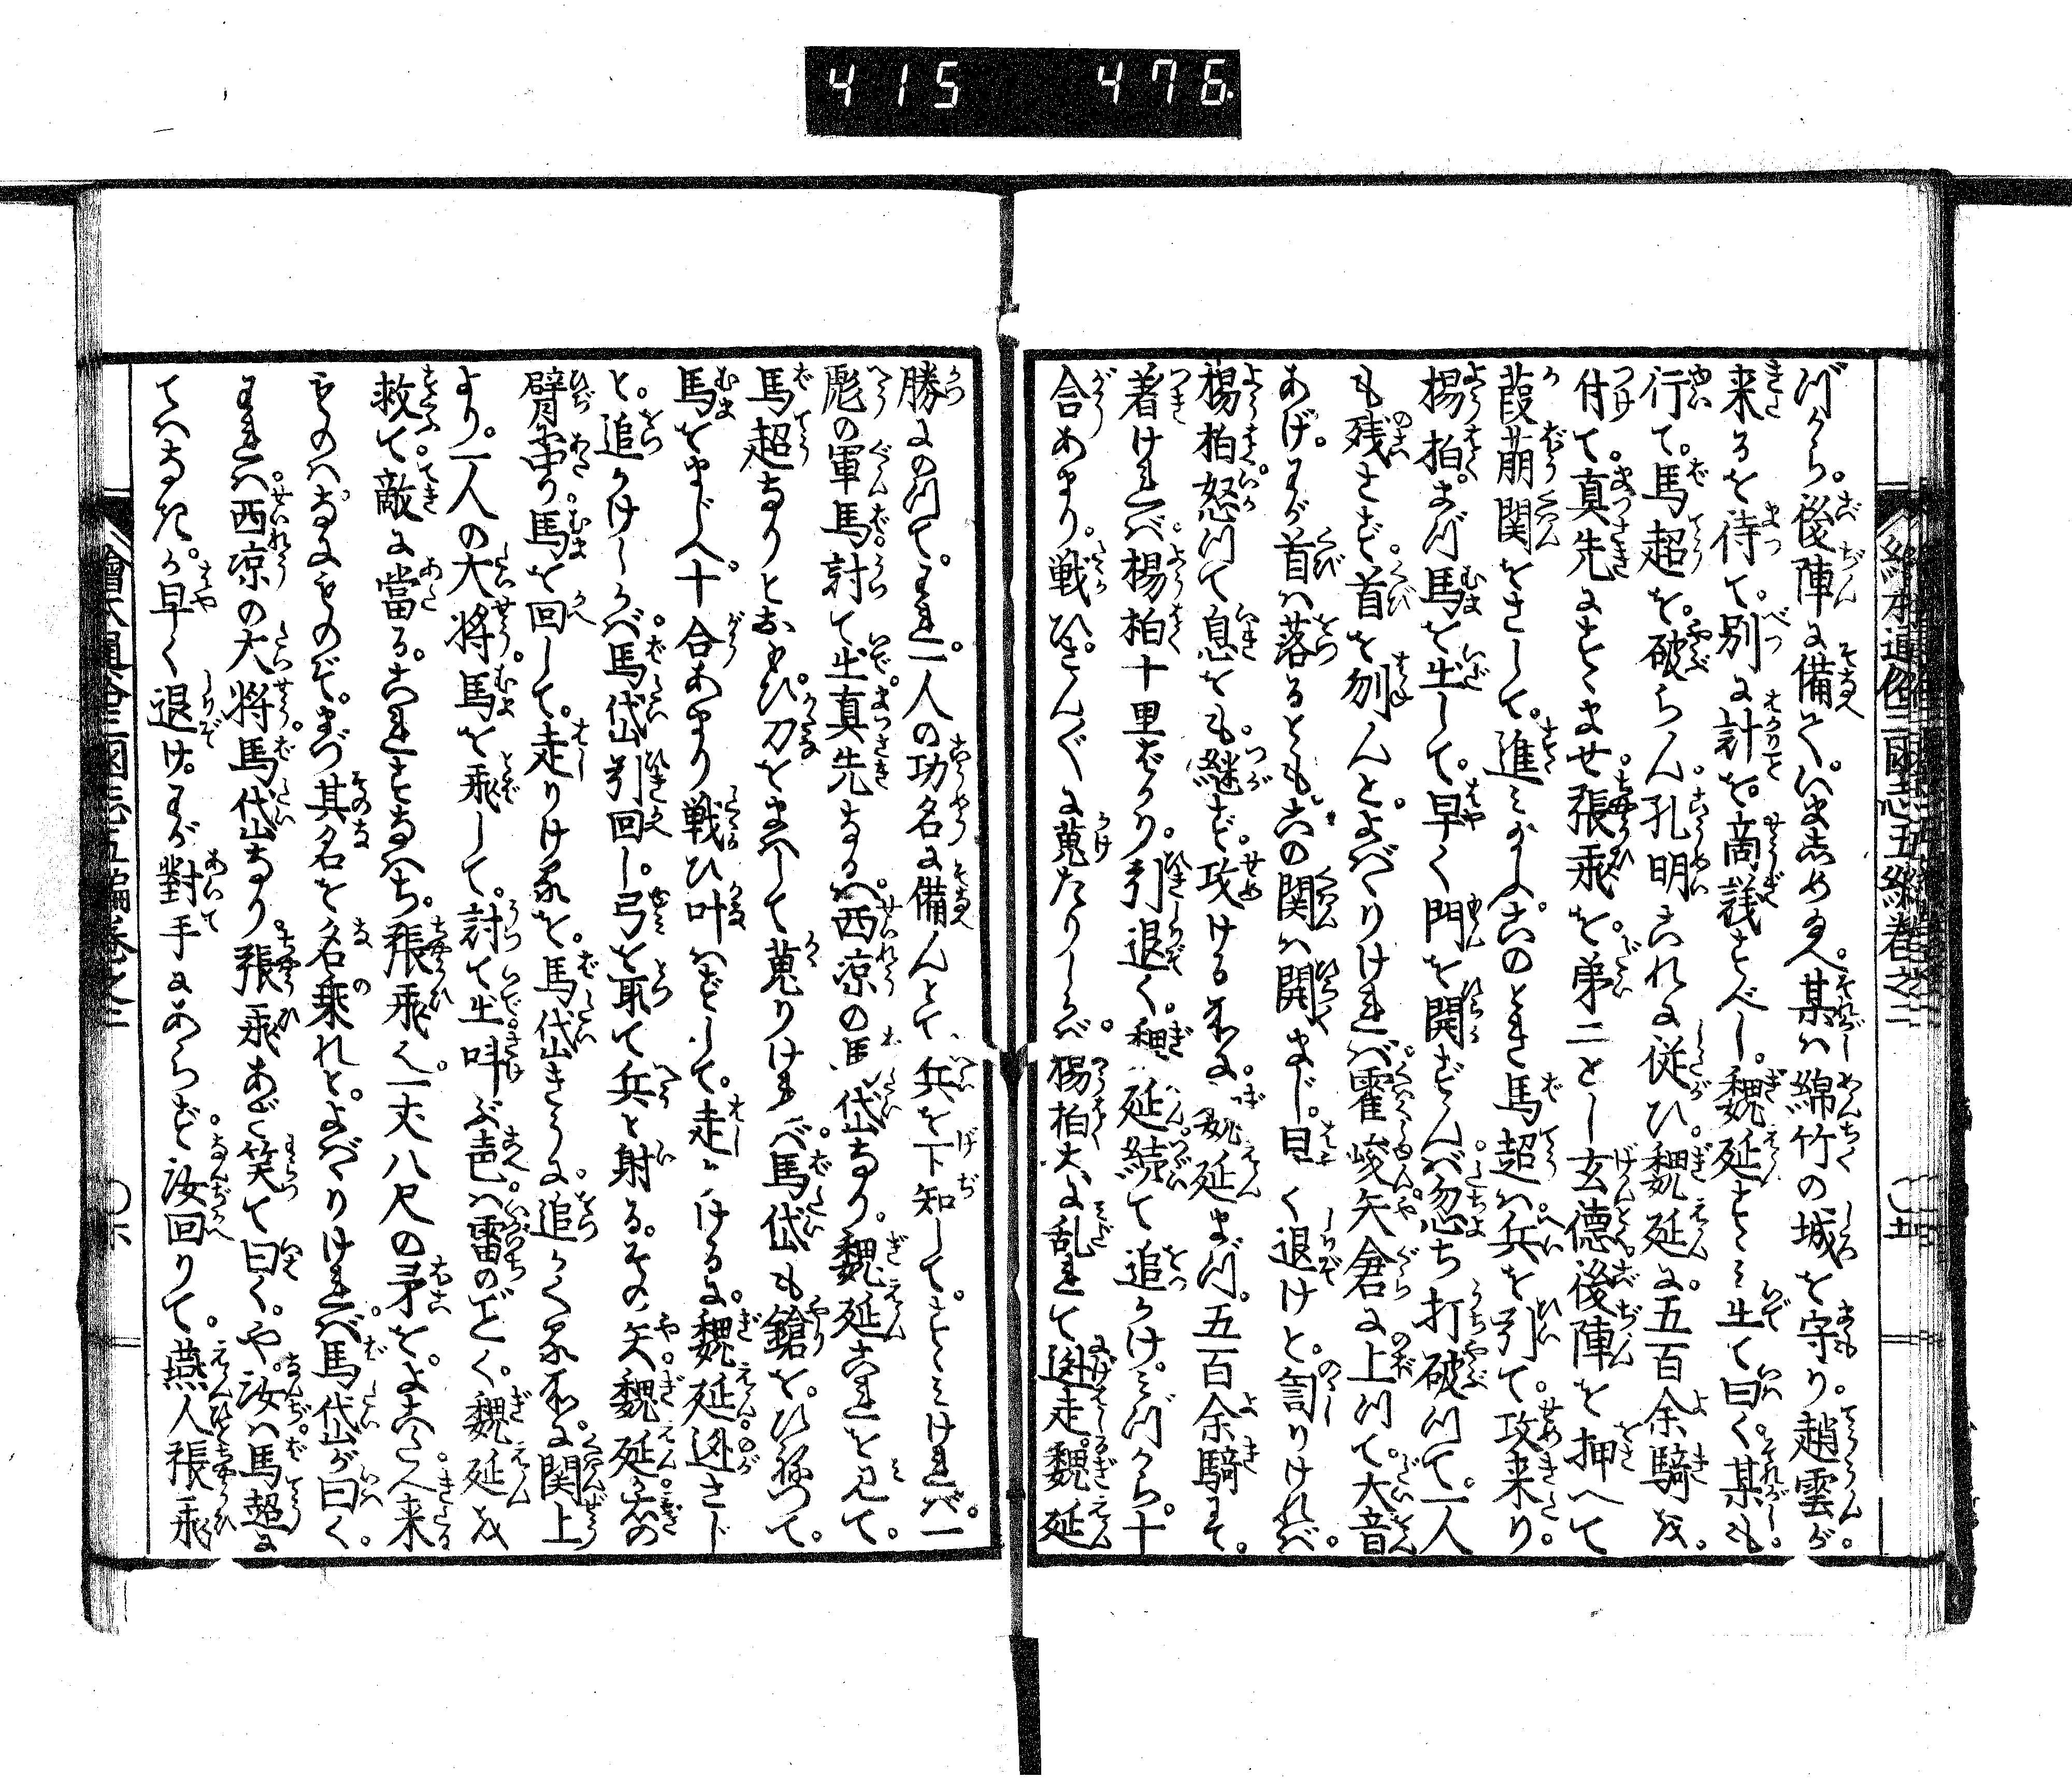 415 476
絵本通俗三国志五編巻之二
〇五
づから。後陣に備ふ。いましめ玉へ。某は綿竹の城を守り。趙雲が。
来るを待て。別に計を。商議すべし。魏延すゝみ出て曰く。某も
行て。馬超を。破らん。孔明これに従ひ。魏延に。五百余騎を。
付て。真先にすゝませ。張飛を。第二とし玄徳後陣を押へて
葭萌関をさして。進み玉ふ。このとき馬超は兵を引て。攻来り。
楊柏まづ馬を出して。早く門を開ずんば忽ち打破つて。一人
も残さず。首を刎んと。よばゝりければ。霍峻矢倉に上つて。大音
あげ。わが首は落るとも。この関は開くまじ。早く退けと。罵りければ。
楊柏怒つて息をも。継ず。攻ける所に。魏延まづ。五百余騎にて。
着ければ。楊柏十里ばかり。引退く。魏延続て追かけ。みづから。十
合あまり。戦ひ。さんざんに蒐たりしかば。楊柏大に乱れて逃走。魏延
勝にのつて。われ。一人の功名に備んとて、兵を下知して。すゝみければ。一
彪の軍馬討て出真先なるは。西凉の馬岱なり。魏延これを見て。
馬超なりとおもひ刀をまはして蒐りければ。馬岱も鎗を。ひねつて。
馬をまじへ。十合あまり戦ひ叶はずして。走りけるに。魏延。逃さじ
と。追かけしかば。馬岱引回し。弓を取て兵と射る。その矢。魏延が右の
臂に当り馬を回して。走りけるを。馬岱きうに。追かくる所に関上
より。一人の大将馬を飛して。討て出叫ぶ声は雷のごとく。魏延を
救て。敵に當る。これすなはち。張飛なり。一丈八尺の矛を。よこたへ来
ものはなにものぞ。まづ其名を名乗れと。よばゝりければ。馬岱が曰く。
われは。西凉の大将。馬岱なり。張飛あざ笑て曰く。や。汝は馬超に
てはなきか早く退け。わが對手にあらず。汝回りて。燕人張飛
繪本通俗三國志五編巻之二
〇六